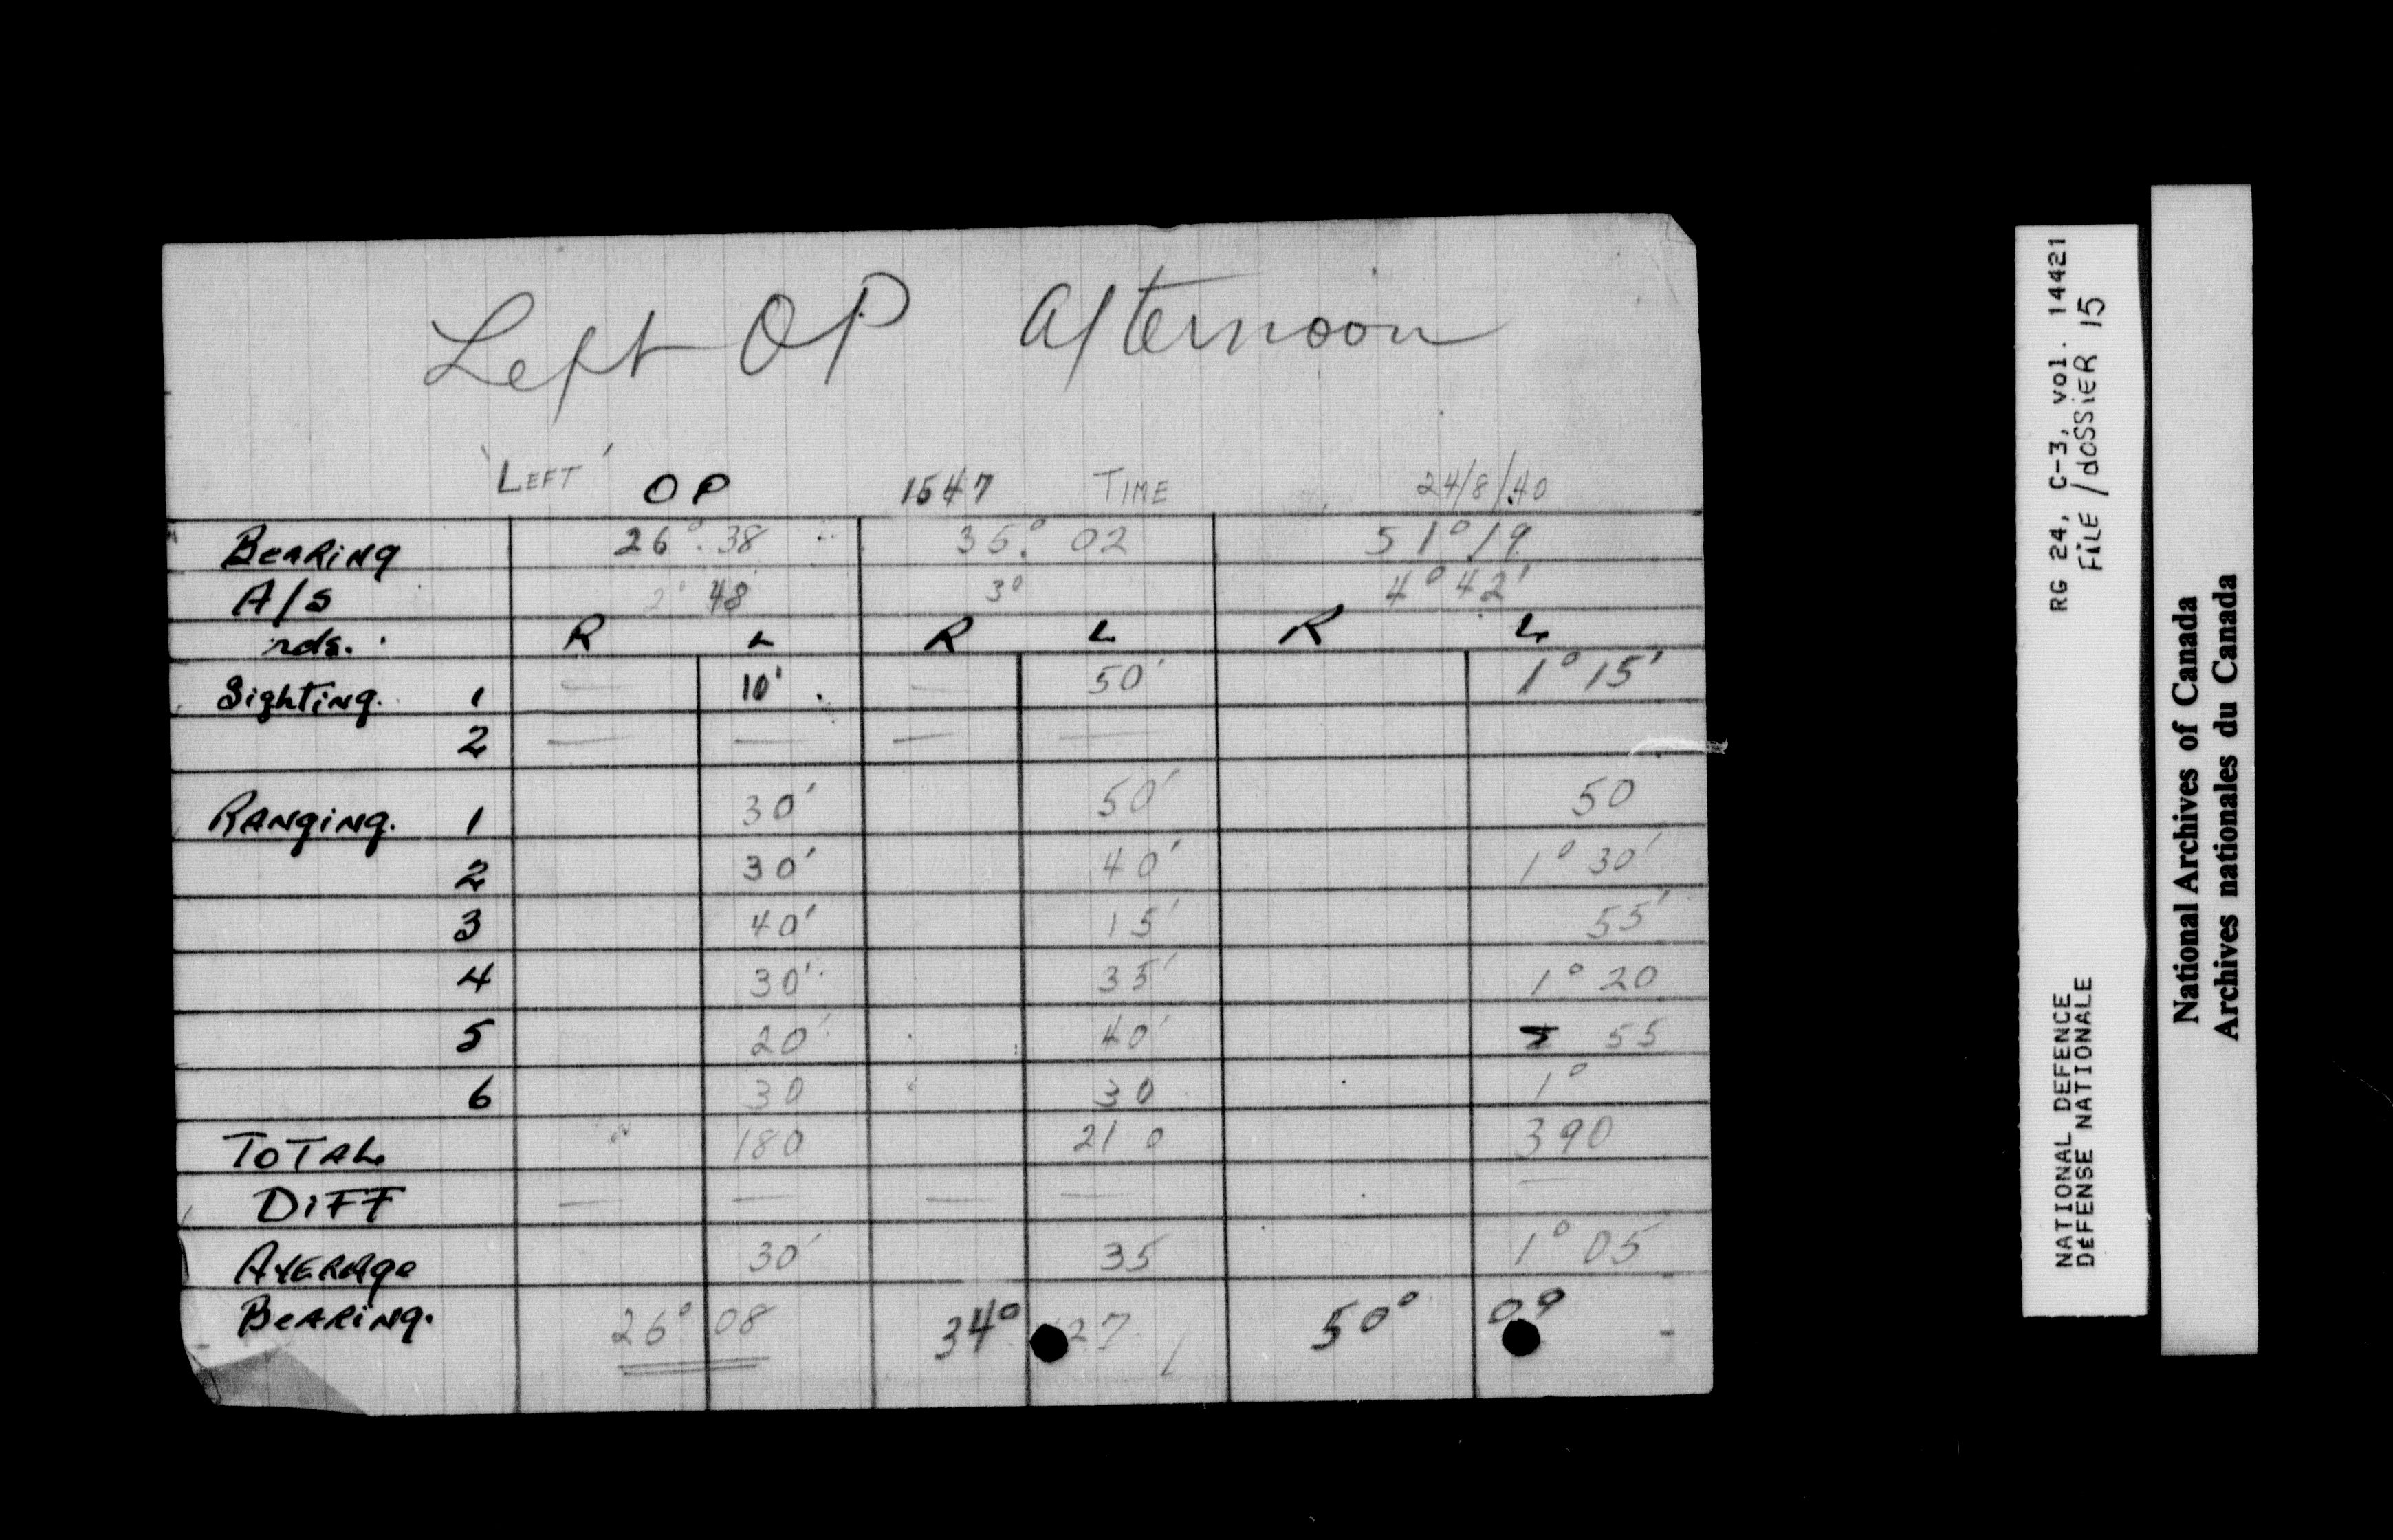 Left OP afternoon
'LEFT' OP 1547 TIME 24/8/40
Bearing 26°.38 35°. 02 51°19
A/S 2° 48 3° 4°42'
rds. R L R L R L
Sighting. 1 — 10' — 50' 1°15'
2 — — — —
Ranging. 1 30' 50' 50
2 30' 40' 1°30'
3 40' 15' 55'
4 30' 35' 1°20
5 20' 40' 55
6 30 30 1°
TOTAL 180 210 390
DIFF — — — — —
AVERAge 30' 35 1°05
BeARing. 26° 08 34° 27 50° 09
RG 24, C-3, vol. 14421
FiLE/dOSSiER 15
NATIONAL DEFENCE
DÉFENSE NATIONALE
National Archives of Canada
Archives nationales du Canada